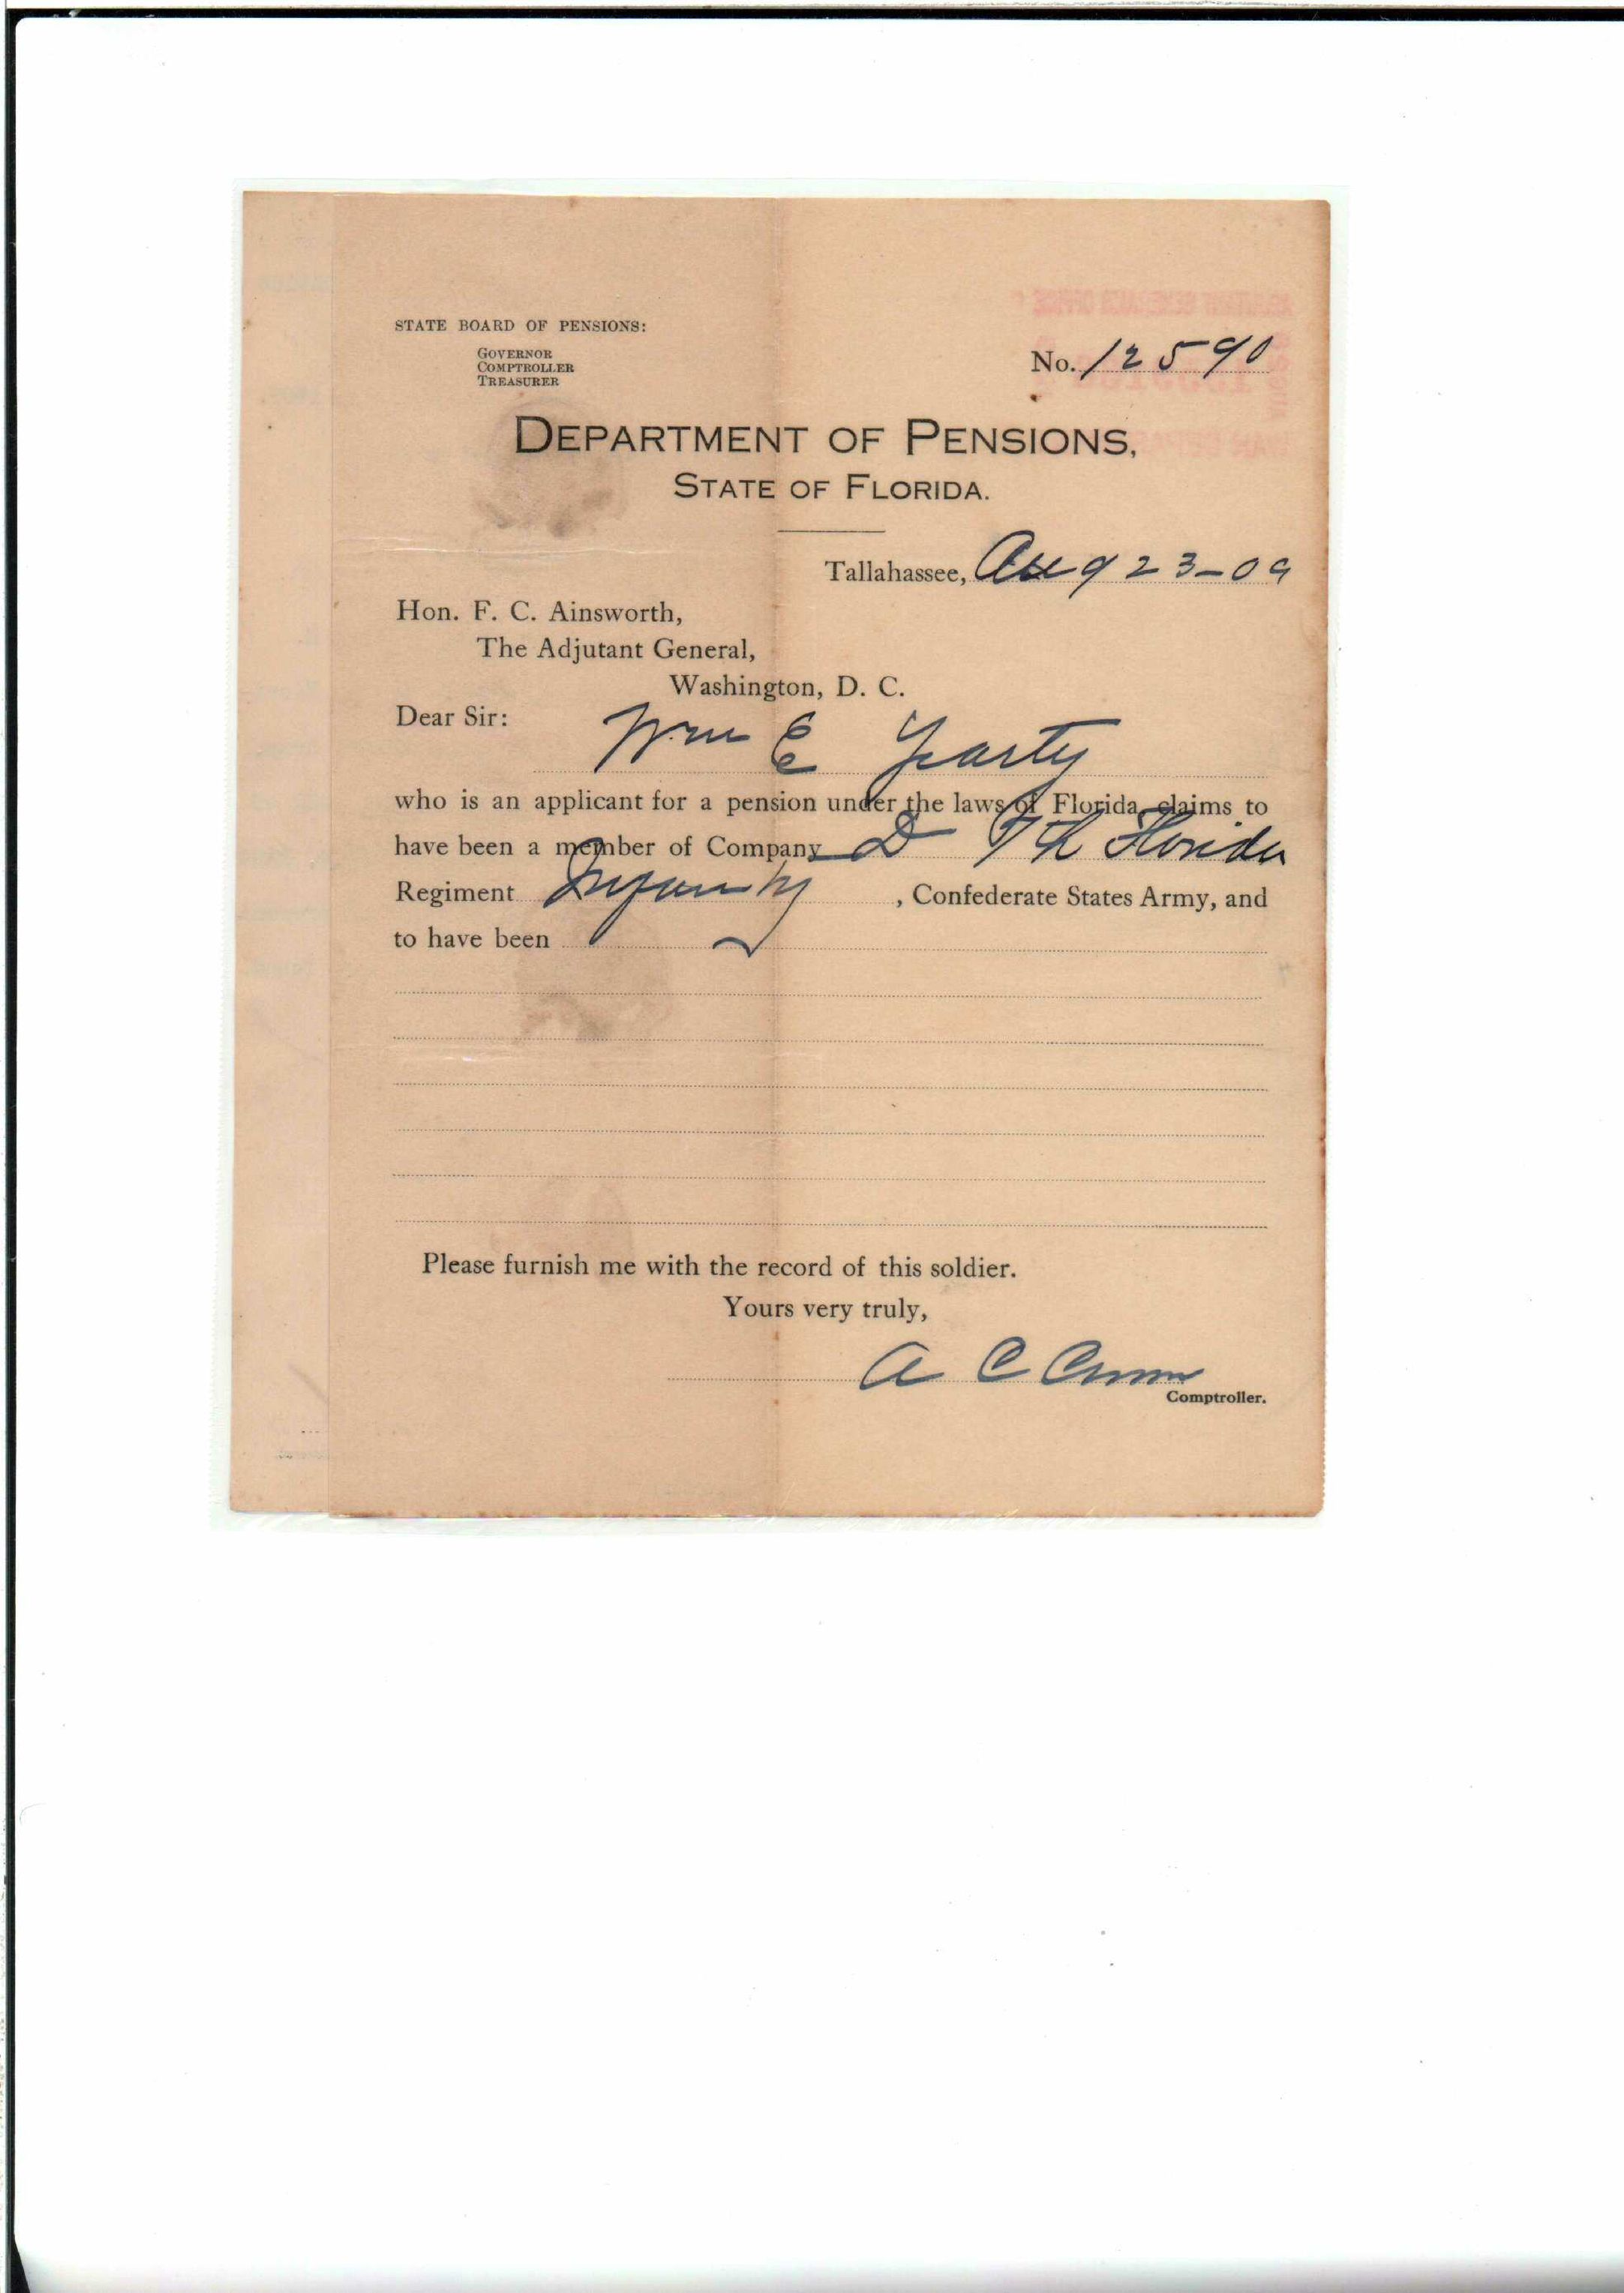 STATE BOARD OF PENSIONS:
GOVERNOR
COMPTROLLER
TREASURER
No. 12590
DEPARTMENT OF PENSIONS,
STATE OF FLORIDA.
Tallahassee, Aug 23-09
Hon. F. C. Ainsworth,
The Adjutant General,
Washington, D. C.
Dear Sir:
Wm E Yearty
who is an applicant for a pension under the laws of Florida, claims to
have been a member of Company D 7th Florida
Regiment Infantry , Confederate States Army, and
to have been
Please furnish me with the record of this soldier.
Yours very truly,
A C Croom
Comptroller.